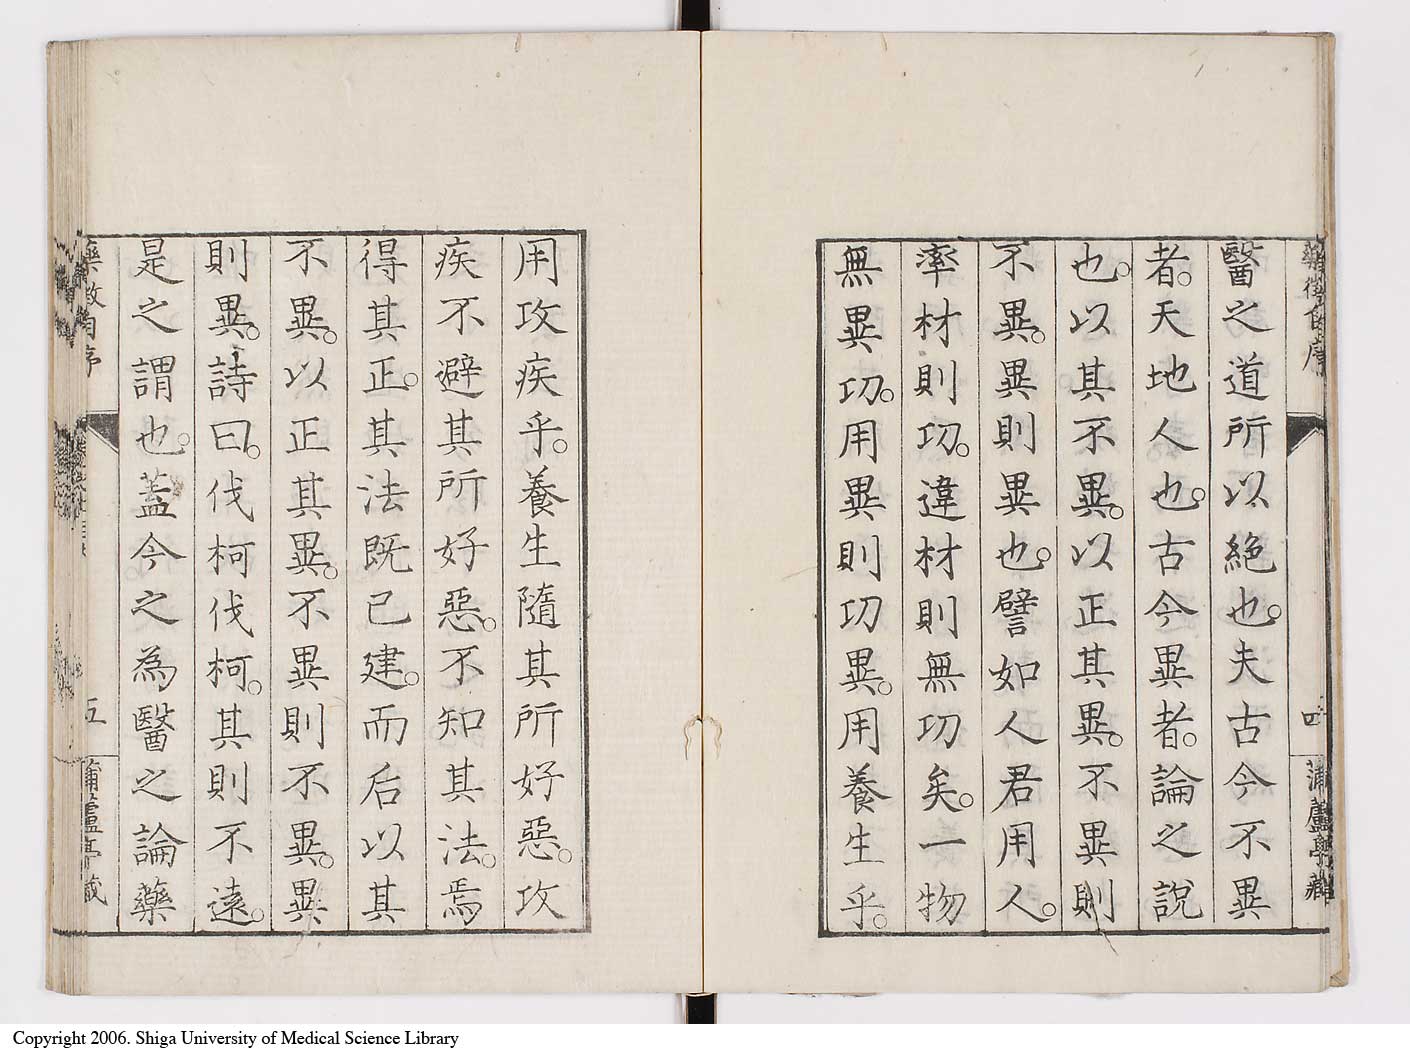 藥徵自序
四
蒲盧亭藏
醫之道所以絶也。夫古今不異
者。天地人也。古今異者。論之說
也。以其不異。以正其異。不異則
不異。異則異也。譬如人君用人。
率材則功。違材則無功矣。一物
無異功。用異則功異。用養生乎。
用攻疾乎。養生隨其所好惡。攻
疾不避其所好惡。不知其法。焉
得其正。其法既已建。而后以其
不異。以正其異。不異則不異。異
則異。詩曰。伐柯伐柯。其則不遠。
是之謂也。蓋今之為醫之論藥
藥徵自序
五
蒲盧亭藏
Copyright 2006. Shiga University of Medical Science Library